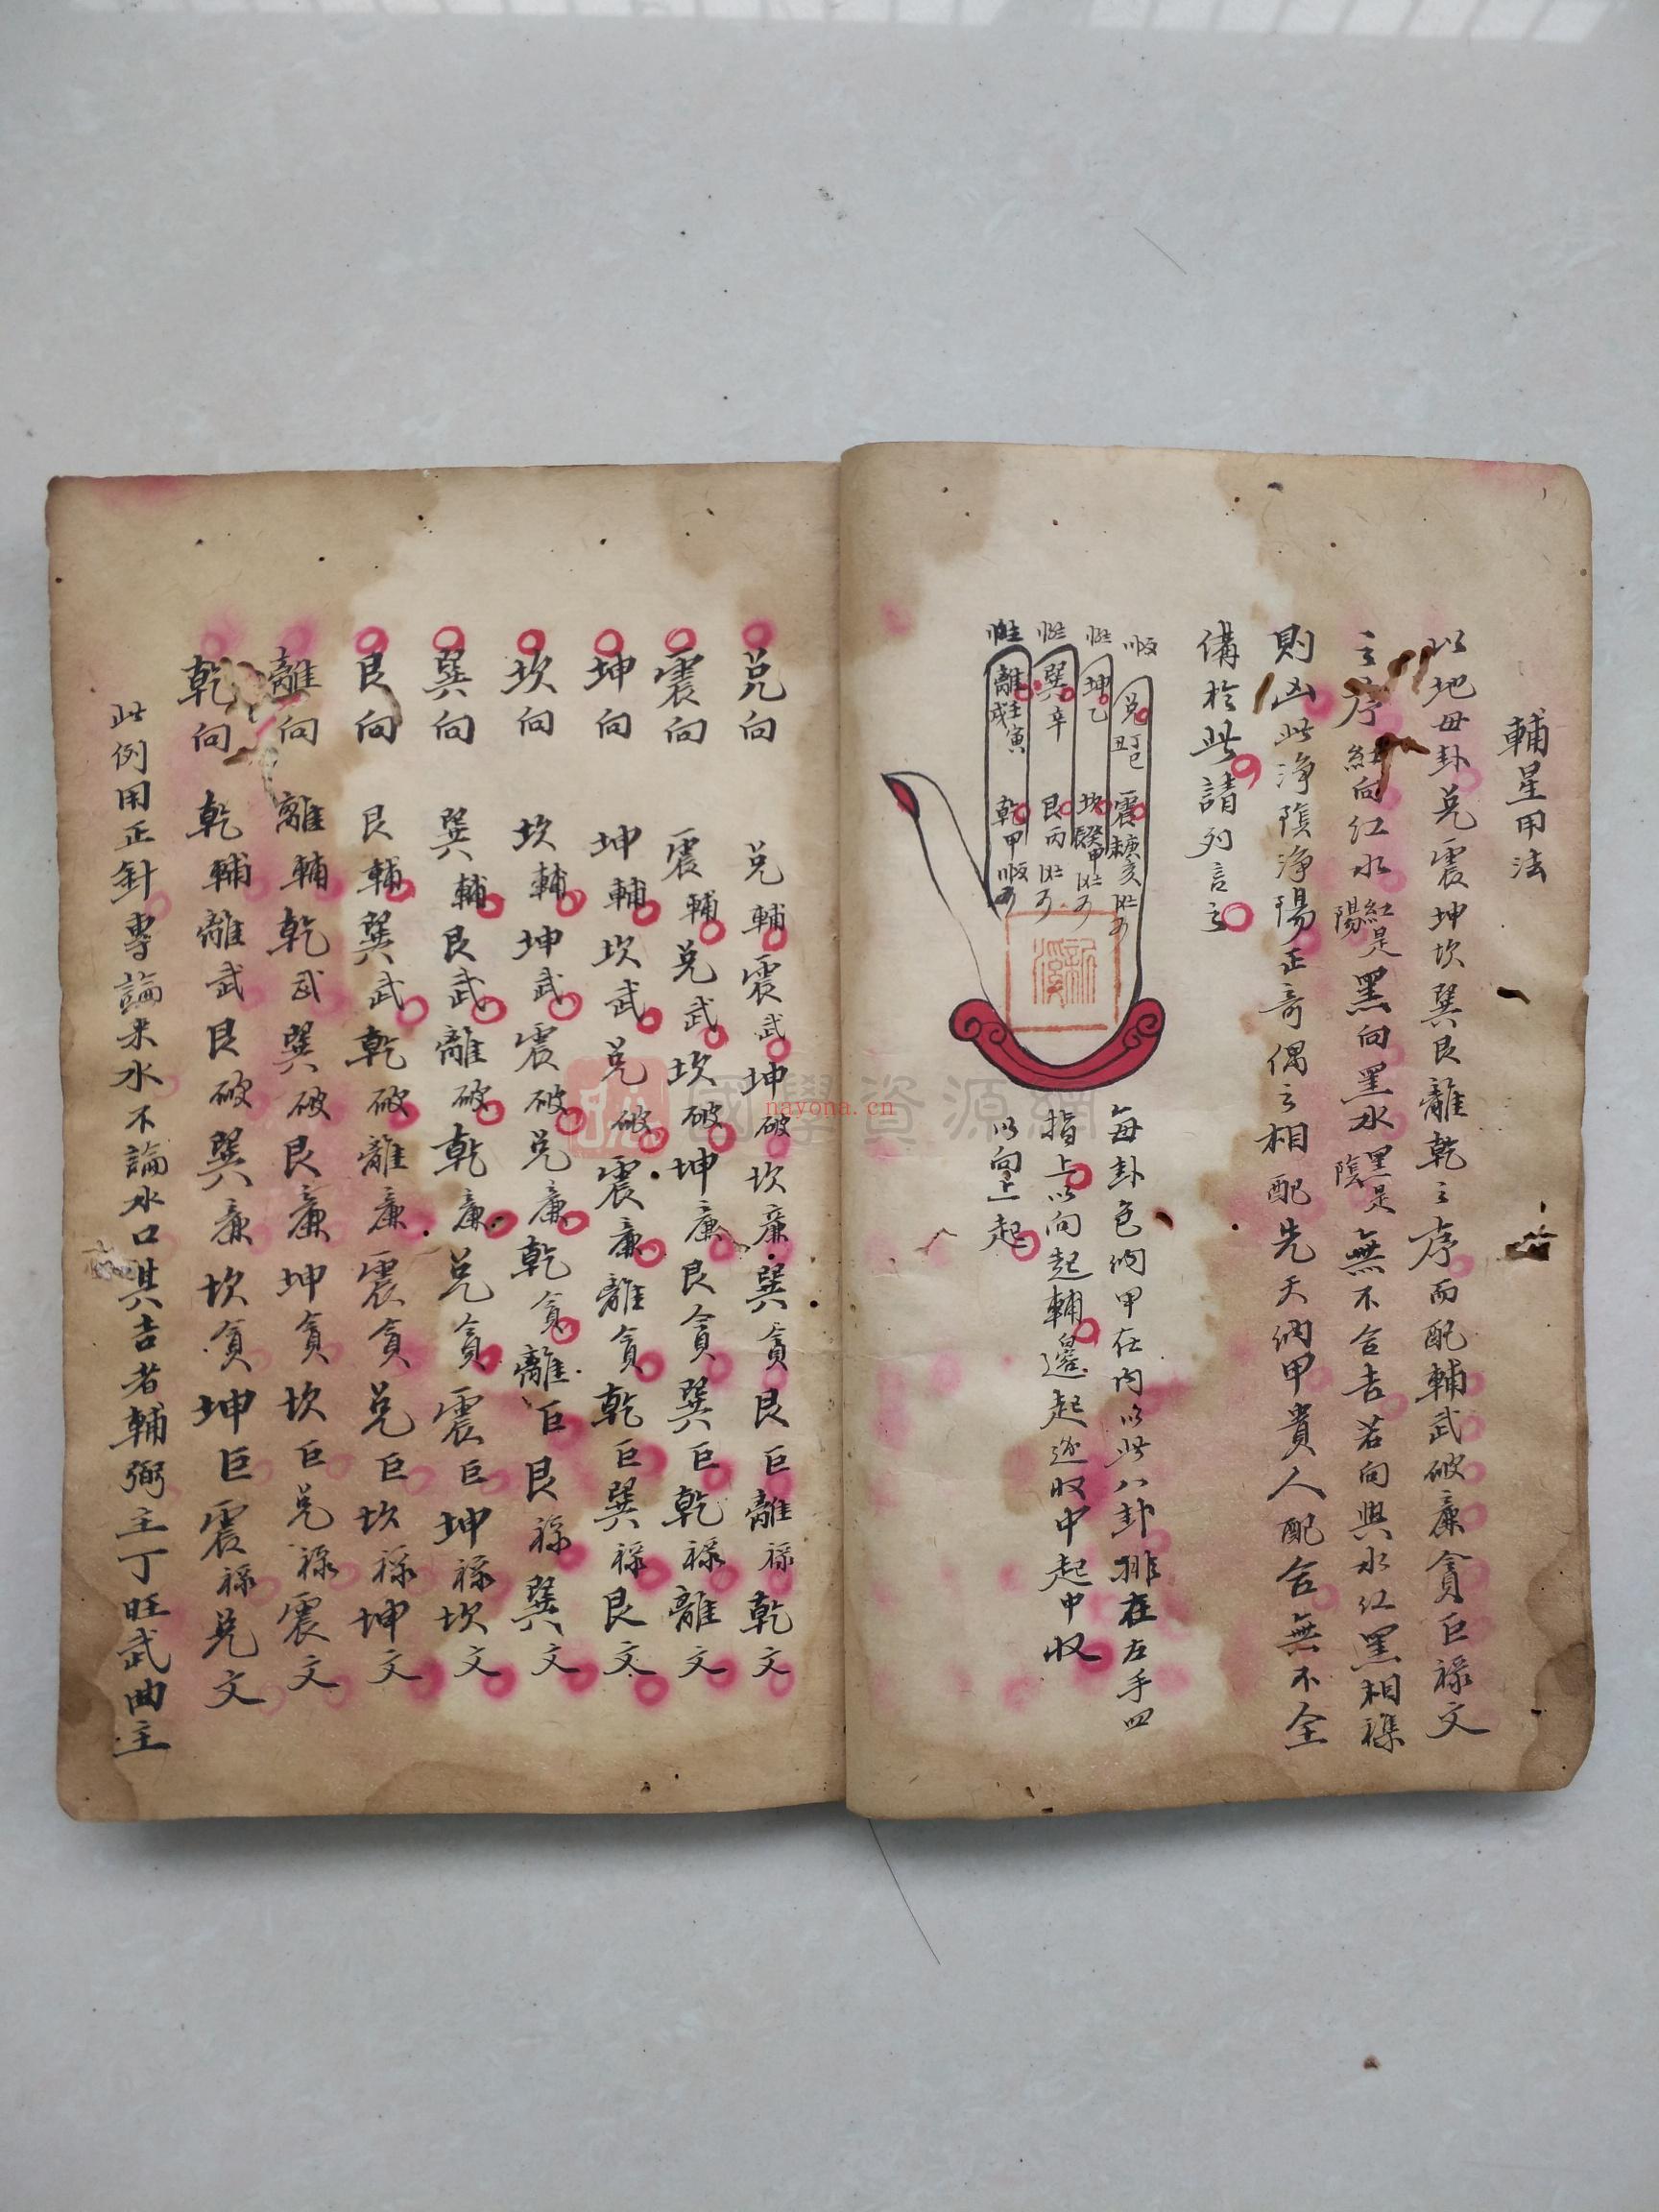 輔星用法
以地母卦兌震坤坎巽艮離乾之序而配輔武破廉貪巨祿文
之序 紅向紅水 紅是陽 黑向黑水 黑是陰 無不合吉若向與水紅黑相襍
則凶此淨陰淨陽正奇偶之相配先天納甲貴人配合無不全
備於此請列言之
順 兌丁巳丑 震庚亥未
坤乙 坎癸申辰
巽辛 艮丙
離壬寅戌 乾甲
每卦色納甲在內以此八卦排在左手四
指上以向起輔邊起邊收中起中收
以向上起
兌向 兌輔震武坤破坎廉巽貪艮巨離祿乾文
震向 震輔兌武坎破坤廉艮貪巽巨乾祿離文
坤向 坤輔坎武兌破震廉離貪乾巨巽祿艮文
坎向 坎輔坤武震破兌廉乾貪離巨艮祿巽文
巽向 巽輔艮武離破乾廉兌貪震巨坤祿坎文
艮向 艮輔巽武乾破離廉震貪兌巨坎祿坤文
離向 離輔乾武巽破艮廉坤貪坎巨兌祿震文
乾向 乾輔離武艮破巽廉坎貪坤巨震祿兌文
此例用正針專論來水不論水口其吉者輔弼主丁旺武曲主
國學資源網
nayona.cn